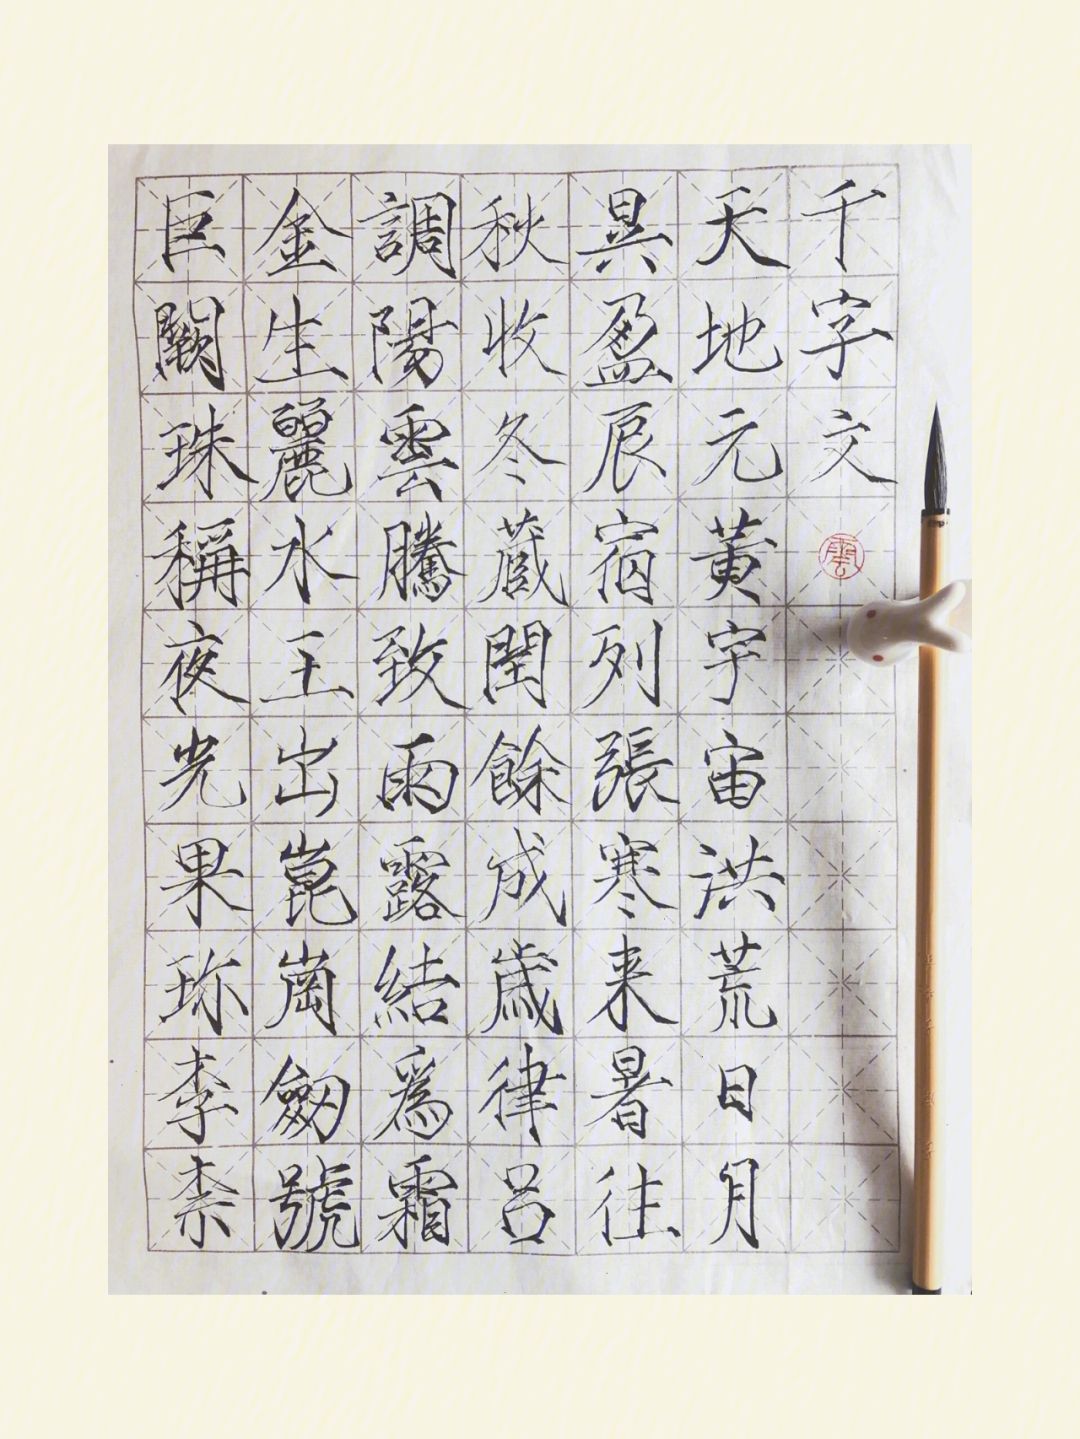 千字文
天地元黄宇宙洪荒日月
昃盈辰宿列張寒来暑往
秋收冬蔵閏餘成歳律呂
調陽雲騰致雨露結爲霜
金生麗水王出崑崗劒號
巨闕珠稱夜光果珎李柰